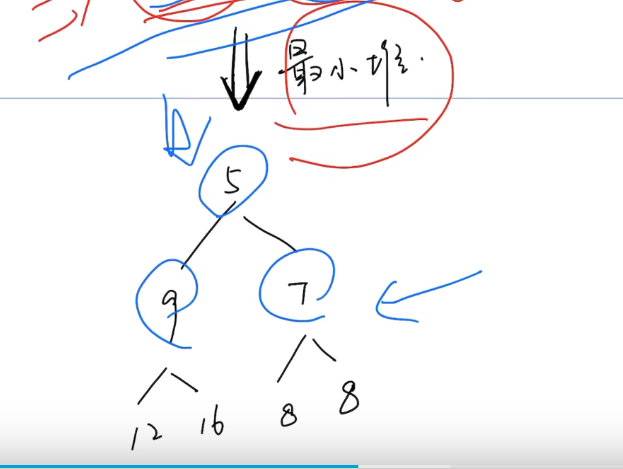 最小堆.
5
9 7
12 16 8 8